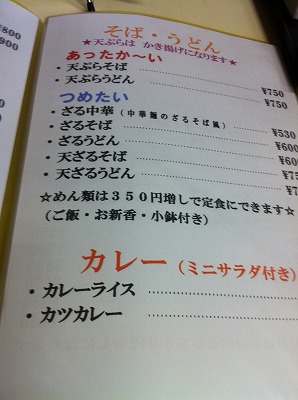 ¥800
900
そば・うどん
★天ぷらは かき揚げになります★
あったか～い
・天ぷらそば ¥750
・天ぷらうどん ¥750
つめたい
・ざる中華（中華麺のざるそば風） ¥530
・ざるそば ¥600
・ざるうどん ¥600
・天ざるそば
・天ざるうどん
☆めん類は３５０円増しで定食にできます☆
（ご飯・お新香・小鉢付き）
カレー（ミニサラダ付き）
・カレーライス
・カツカレー